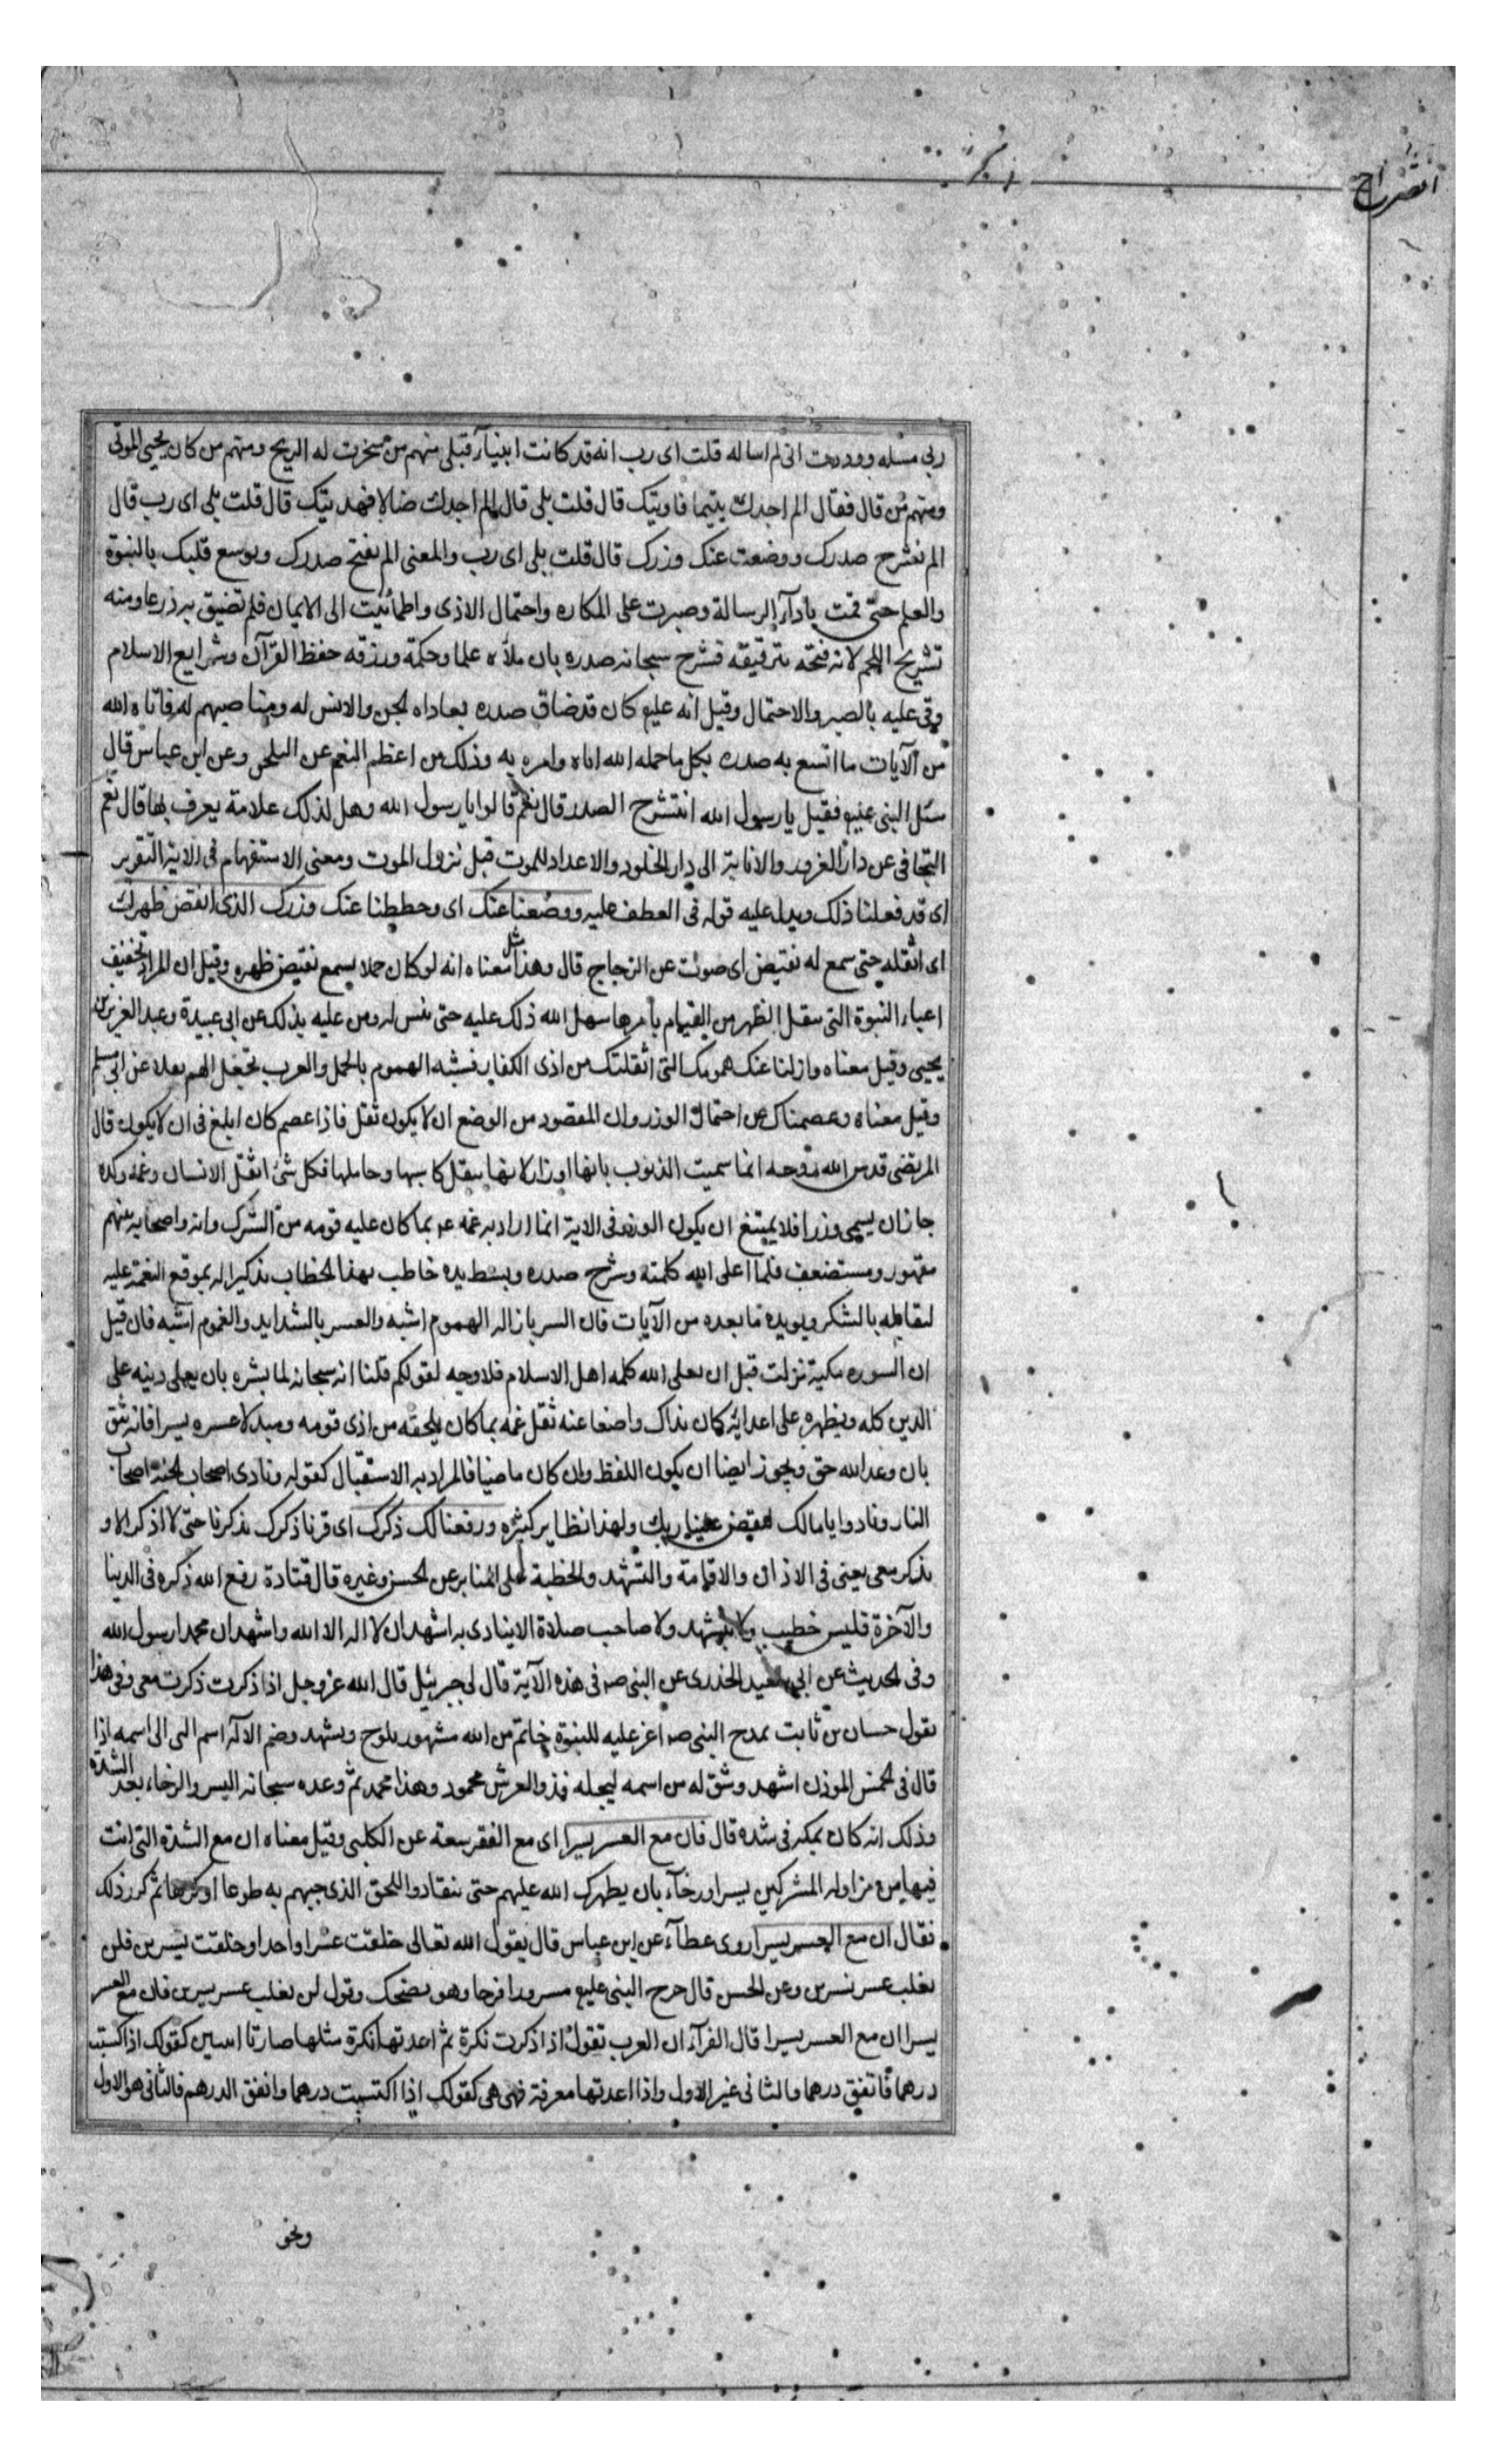 انشراح
ربى مسئله وودرت انى لم اساله قلت اى رب انه قد كانت ابنيآء قبلى منهم من سخرت له الريح ومنهم من كان يحيى الموتى
ومنهم من قال فقال الم اجدك يتيما فاويتك قال قلت بلى قال الم اجدك ضالا فهديتك قال قلت بلى اى رب قال
الم نشرح صدرك ووضعت عنك وزرك قال قلت بلى اى رب والمعنى الم نفتح صدرك ونوسع قلبك بالنبوة
والعلم حتى قمت بادآء الرسالة وصبرت على المكاره واحتمال الاذى واطمأننت الى الايمان فلم تضيق به ذرعا ومنه
تشريح اللحم لانه فتحه بترقيقه فشرح سبحانه صدره بان ملأه علما وحكمة ورزقه حفظ القرآن وشرايع الاسلام
وقى عليه بالصبر والاحتمال وقيل انه عليه كان قد ضاق صدره بعاداه الجن والانس له ومناصبهم له فاتاه الله
من الآيات ما اتسع به صدره بكل ما حمله الله اياه وامره به وذلك من اعظم النعم عن البلخى وعن ابن عباس قال
سئل النبى عليه فقيل يا رسول الله انتشرح الصدر قال نعم قالوا يا رسول الله وهل لذلك علامة يعرف بها قال نعم
التجافى عن دار الغرور والانابة الى دار الخلود والاعداد للموت قبل نزول الموت ومعنى الاستفهام فى الاية التقرير
اى قد فعلنا ذلك ويدل عليه قوله فى العطف عليه ووضعنا عنك اى وحططنا عنك وزرك الذى انقض ظهرك
اى اثقله حتى سمع له نقيض اى صوت عن الزجاج قال وهذا مثل معناه انه لو كان حملا يسمع نقيض ظهره وقيل ان المراد تخفيف
اعباء النبوة التى تثقل الظهر من القيام بامرها سهل الله ذلك عليه حتى تيسر له ومن عليه بذلك عن ابى عبيدة وعبد العزيز بن
يحيى وقيل معناه وازلنا عنك همومك التى اثقلتك من اذى الكفار فشبه الهموم بالحمل والعرب تجعل الهم ثقلا عن ابى مسلم
وقيل معناه وعصمناك عن احتمال الوزر وان المقصود من الوضع ان لا يكون ثقل فاذا عصم كان ابلغ فى ان لا يكون قال
المرتضى قدس الله روحه انما سميت الذنوب بانها اوزار لانها يثقل كاسبها وحاملها فكل شئ اثقل الانسان وغمه وكده
جاز ان يسمى وزرا فلا يمتنع ان يكون الوزر فى الاية انما اراد به غمه بما كان عليه قومه من الشرك وانه واصحابه بينهم
مقهور ومستضعف فلما اعلى الله كلمته وشرح صدره وبسط يده خاطب بهذا الخطاب تذكيرا له بموقع النعمة عليه
ليقابله بالشكر ويويده ما بعده من الآيات فان اليسر بازاله الهموم اشبه والعسر بالشدايد والغموم اشبه فان قيل
ان السوره مكية نزلت قبل ان يعلى الله كلمه اهل الاسلام فلا وجه لقولكم قلنا انه سبحانه لما بشره بان يعلى دينه على
الدين كله ويظهره على اعدائه كان بذاك واضعا عنه ثقل غمه بما كان يلحقه من اذى قومه ومبدلا عسره يسرا فانه يثق
بان وعد الله حق ويجوز ايضا ان يكون اللفظ وان كان ماضيا فالمراد به الاستقبال كقوله ونادى اصحاب الجنة اصحاب
النار ونادوا يا مالك ليقض علينا ربك ولهذا نظاير كثيره ورفعنا لك ذكرك اى قرنا ذكرك بذكرنا حتى لا اذكر الا و
تذكر معى يعنى فى الاذان والاقامة والتشهد والخطبة على المنابر عن الحسن وغيره قال قتادة رفع الله ذكره فى الدينا
والآخرة فليس خطيب ولا متشهد ولا صاحب صلاة الا ينادى به اشهد ان لا اله الا الله واشهد ان محمدا رسول الله
وفى الحديث عن ابى سعيد الخذرى عن النبى ص فى هذه الآية قال لى جبرئيل قال الله عز وجل اذا ذكرت ذكرت معى وفى هذا
يقول حسان بن ثابت بمدح النبى ص اغر عليه للنبوة خاتم من الله مشهور يلوح ويشهد وضم الاله اسم النبى الى اسمه اذا
قال فى الخمس الموذن اشهد وشق له من اسمه ليجله فذو العرش محمود وهذا محمد ثم وعده سبحانه اليسر والرخاء بعد الشدة
وذلك انه كان بمكه فى شده قال فان مع العسر يسرا اى مع الفقر سعة عن الكلبى وقيل معناه ان مع الشدة التى انت
فيها من مزاوله المشركين يسرا ورخآء بان يظهرك الله عليهم حتى ينقادوا للحق الذى جيتهم به طوعا او كرها ثم كرر ذلك
فقال ان مع العسر يسرا روى عطآء عن ابن عباس قال يقول الله تعالى خلقت عسرا واحدا وخلقت يسرين فلن
يغلب عسر يسرين وعن الحسن قال خرج النبى عليه مسرورا فرحا وهو يضحك ويقول لن يغلب عسر يسرين فان مع العسر
يسرا ان مع العسر يسرا قال الفرآء ان العرب تقول اذا ذكرت نكرة ثم اعدتها نكرة مثلها صارتا اسمين كقولك اذا كسبت
درهما فانفق درهما فالثانى غير الاول واذا اعدتها معرفة فهى هى كقولك اذا اكتسبت درهما وانفق الدرهم فالثانى هو الاول
ونحو